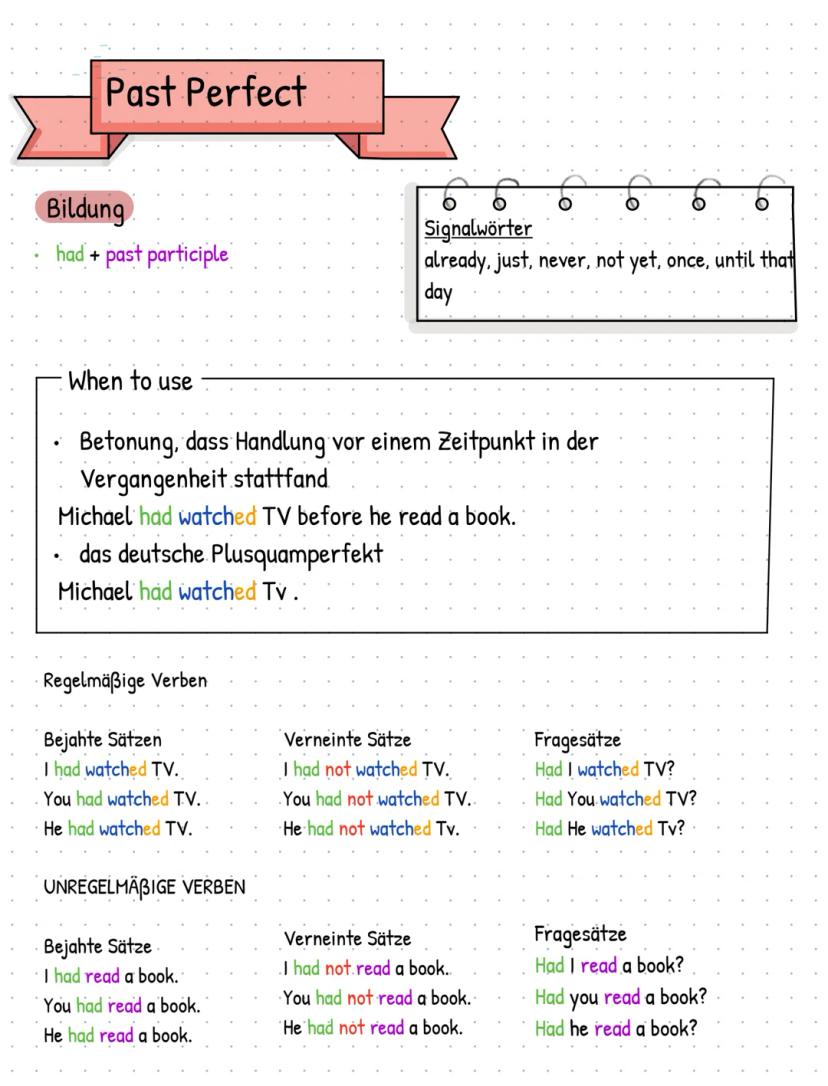 Past Perfect
Bildung
• had + past participle
Signalwörter
already, just, never, not yet, once, until that
day
When to use
• Betonung, dass Handlung vor einem Zeitpunkt in der
Vergangenheit stattfand
Michael had watched TV before he read a book.
• das deutsche Plusquamperfekt
Michael had watched Tv .
Regelmäßige Verben
Bejahte Sätzen
I had watched TV.
You had watched TV.
He had watched TV.
Verneinte Sätze
I had not watched TV.
You had not watched TV.
He had not watched Tv.
Fragesätze
Had I watched TV?
Had You watched TV?
Had He watched Tv?
UNREGELMÄßIGE VERBEN
Bejahte Sätze
I had read a book.
You had read a book.
He had read a book.
Verneinte Sätze
I had not read a book.
You had not read a book.
He had not read a book.
Fragesätze
Had I read a book?
Had you read a book?
Had he read a book?